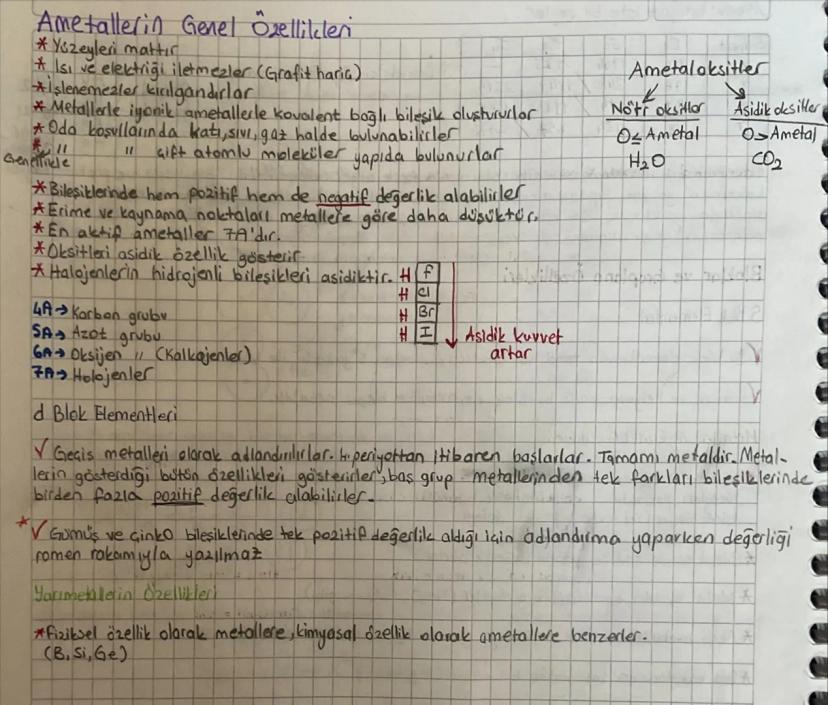 Ametallerin Genel Özellikleri
* Yüzeyleri mattır
* Isı ve elektriği iletmezler (Grafit hariç)
* İşlenemezler kırılgandırlar
* Metallerle iyonik ametallerle kovalent bağlı bileşik oluştururlar
* Oda koşullarında katı, sıvı, gaz halde bulunabilirler
* " " çift atomlu moleküler yapıda bulunurlar
Genellikle
* Bileşiklerinde hem pozitif hem de negatif değerlik alabilirler
* Erime ve kaynama noktaları metallere göre daha düşüktür.
* En aktif ametaller 7A'dır.
* Oksitleri asidik özellik gösterir
* Halojenlerin hidrojenli bileşikleri asidiktir.
H F
H Cl
H Br
H I
Asidik kuvvet
artar
Ametal oksitler
Nötr oksitler
O≤Ametal
H₂O
Asidik oksitler
O>Ametal
CO₂
4A→ Karbon grubu
5A→ Azot grubu
6A→ Oksijen " (Kalkojenler)
7A→ Holojenler
d Blok Elementleri
√ Geçiş metalleri olarak adlandırılırlar. 4. periyottan itibaren başlarlar. Tamamı metaldir. Metal-
lerin gösterdiği bütün özellikleri gösterirler, baş grup metallerinden tek farkları bileşiklerinde
birden fazla pozitif değerlik alabilirler.
* √ Gümüş ve çinko bileşiklerinde tek pozitif değerlik aldığı için adlandırma yaparken değerliği
romen rakamıyla yazılmaz
Yarımetallerin Özellikleri
* Fiziksel özellik olarak metallere, kimyasal özellik olarak ametallere benzerler.
(B, Si, Ge)